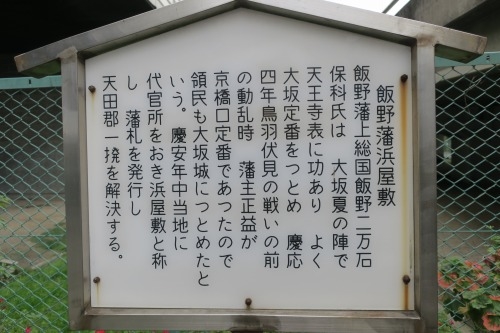 飯野藩浜屋敷
飯野藩上総国飯野二万石
保科氏は 大坂夏の陣で
天王寺表に功あり よく
大坂定番をつとめ 慶応
四年鳥羽伏見の戦いの前
の動乱時 藩主正益が
京橋口定番であったので
領民も大坂城につとめたと
いう。慶安年中当地に
代官所をおき浜屋敷と称
し 藩札を発行し
天田郡一揆を解決する。